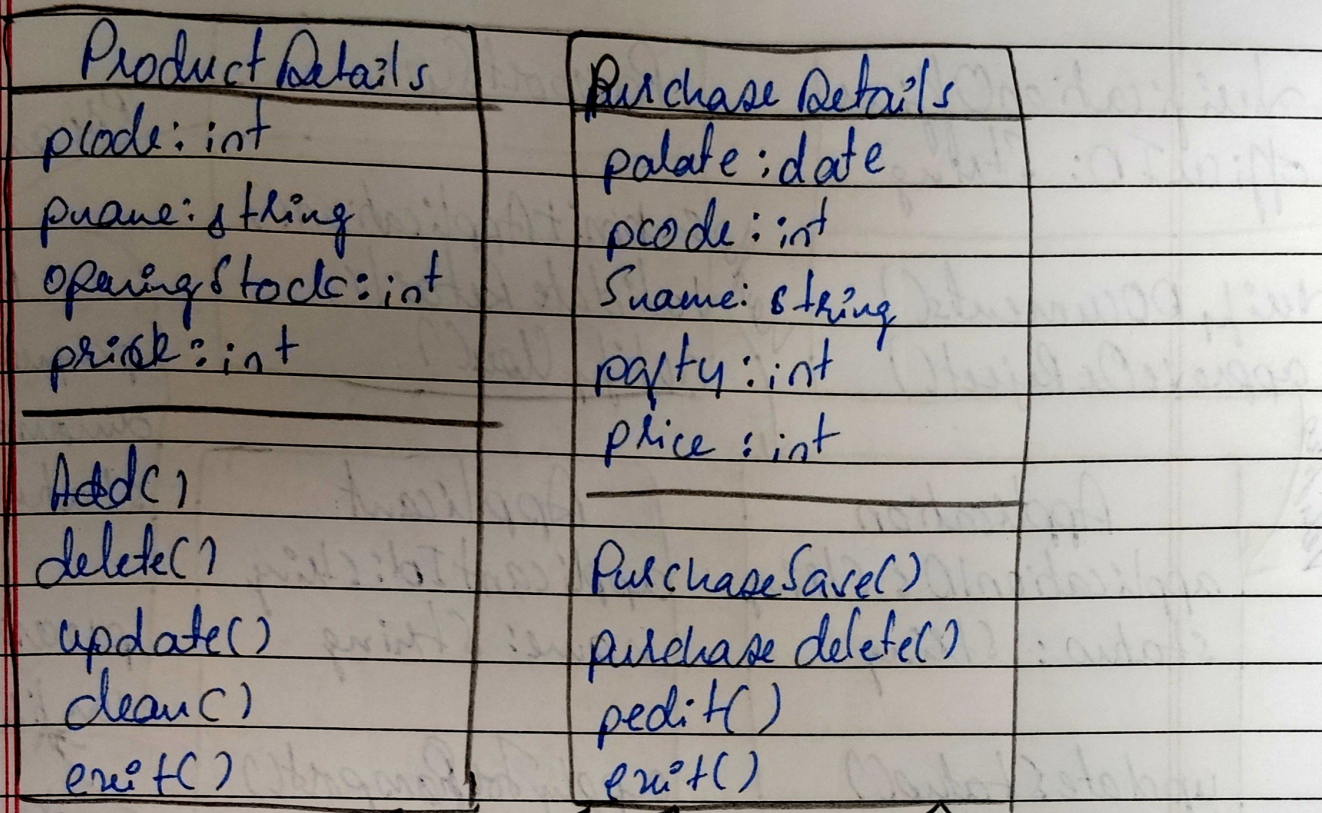 Product Details
pcode: int
pname: string
opening Stock: int
price: int
Add()
delete()
update()
clear()
exit()
Purchase Details
pdate: date
pcode: int
Sname: string
pqty: int
price: int
PurchaseSave()
purchase delete()
pedit()
exit()